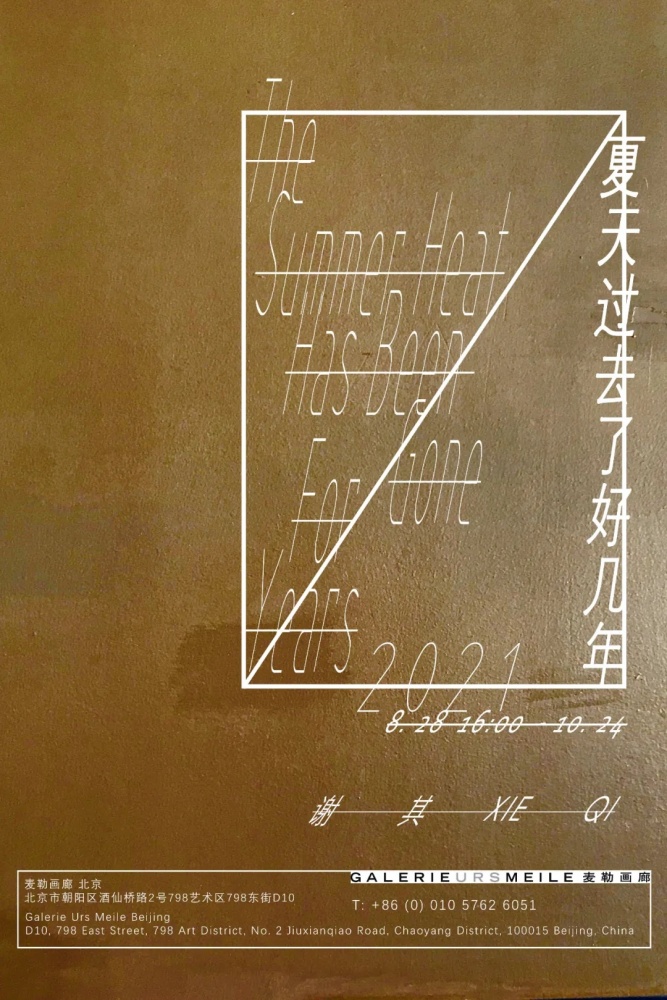 The
Summer Heat
Has Been
Gone
For
Years
夏天过去了好几年
2021
8. 28 16:00 - 10. 24
谢 其 XIE QI
麦勒画廊 北京
北京市朝阳区酒仙桥路2号798艺术区798东街D10
Galerie Urs Meile Beijing
D10, 798 East Street, 798 Art District, No. 2 Jiuxianqiao Road, Chaoyang District, 100015 Beijing, China
GALERIEURSMEILE 麦勒画廊
T: +86 (0) 010 5762 6051